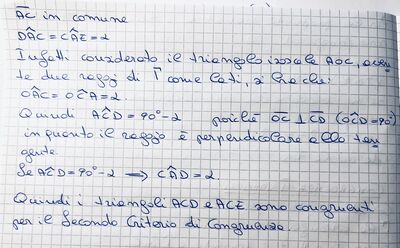 AC in comune
DÂC = CÂE = 2
Infatti considerato il triangolo isoscele AOC, aven
te due raggi di Γ come lati, si ha che:
OÂC = OĈA = 2.
Quindi AĈD = 90° - 2 poiché OC ⊥ CD (OĈD = 90°)
in quanto il raggio è perpendicolare alla tan
gente.
Se AĈD = 90° - 2 → CÂD = 2.
Quindi i triangoli ACD e ACE sono congruenti
per il Secondo Criterio di Congruenza.